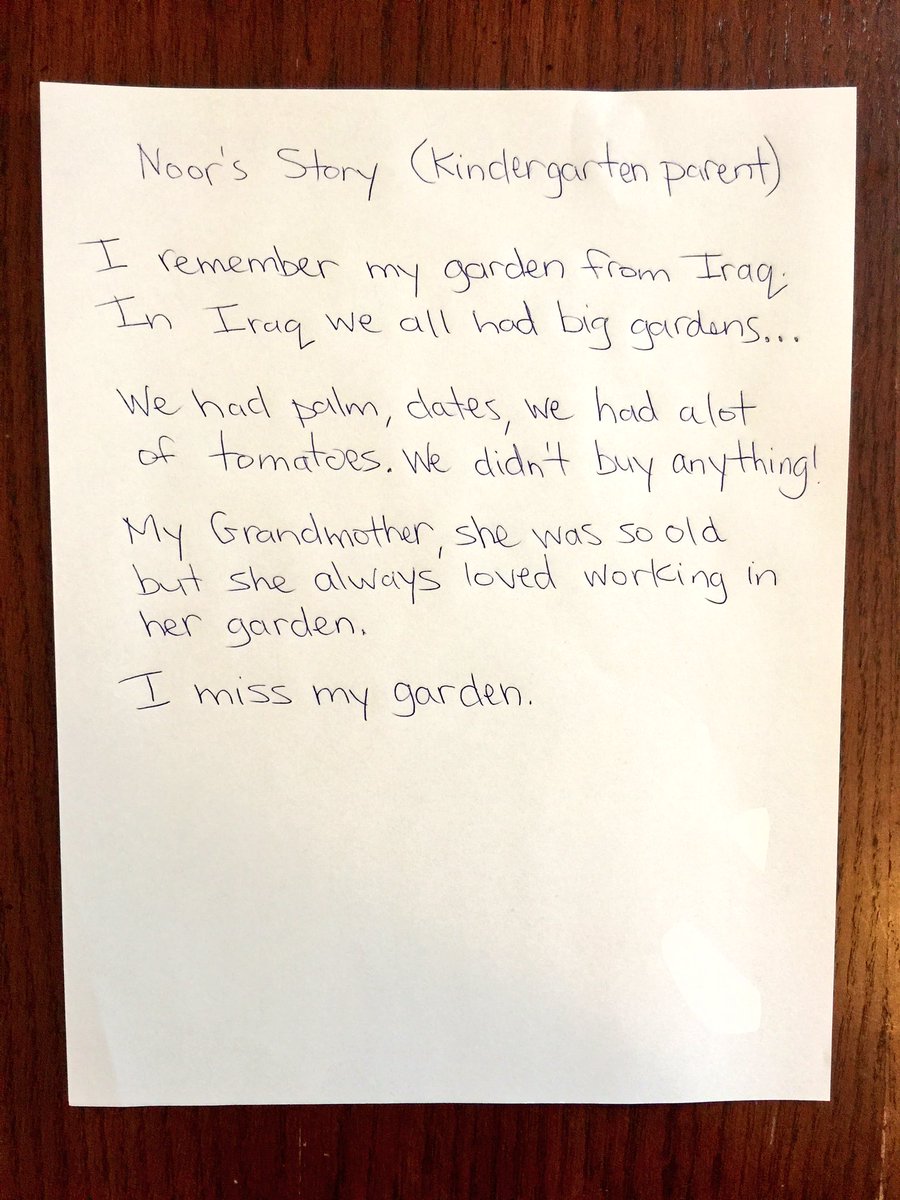 Noor's Story (Kindergarten parent)
I remember my garden from Iraq.
In Iraq we all had big gardens...
We had palm, dates, we had alot
of tomatoes. We didn't buy anything!
My Grandmother, she was so old
but she always loved working in
her garden.
I miss my garden.